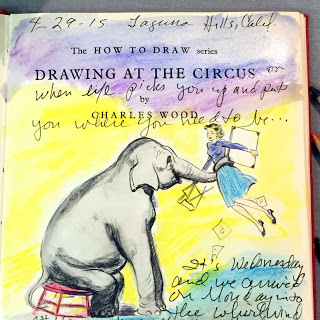 4-29-15 Laguna Hills, Calif.
The HOW TO DRAW series
DRAWING AT THE CIRCUS or
when life picks you up and puts
by
you where you need to be...
CHARLES WOOD
It's Wednesday
and we arrived
on Monday into
the whirlwind